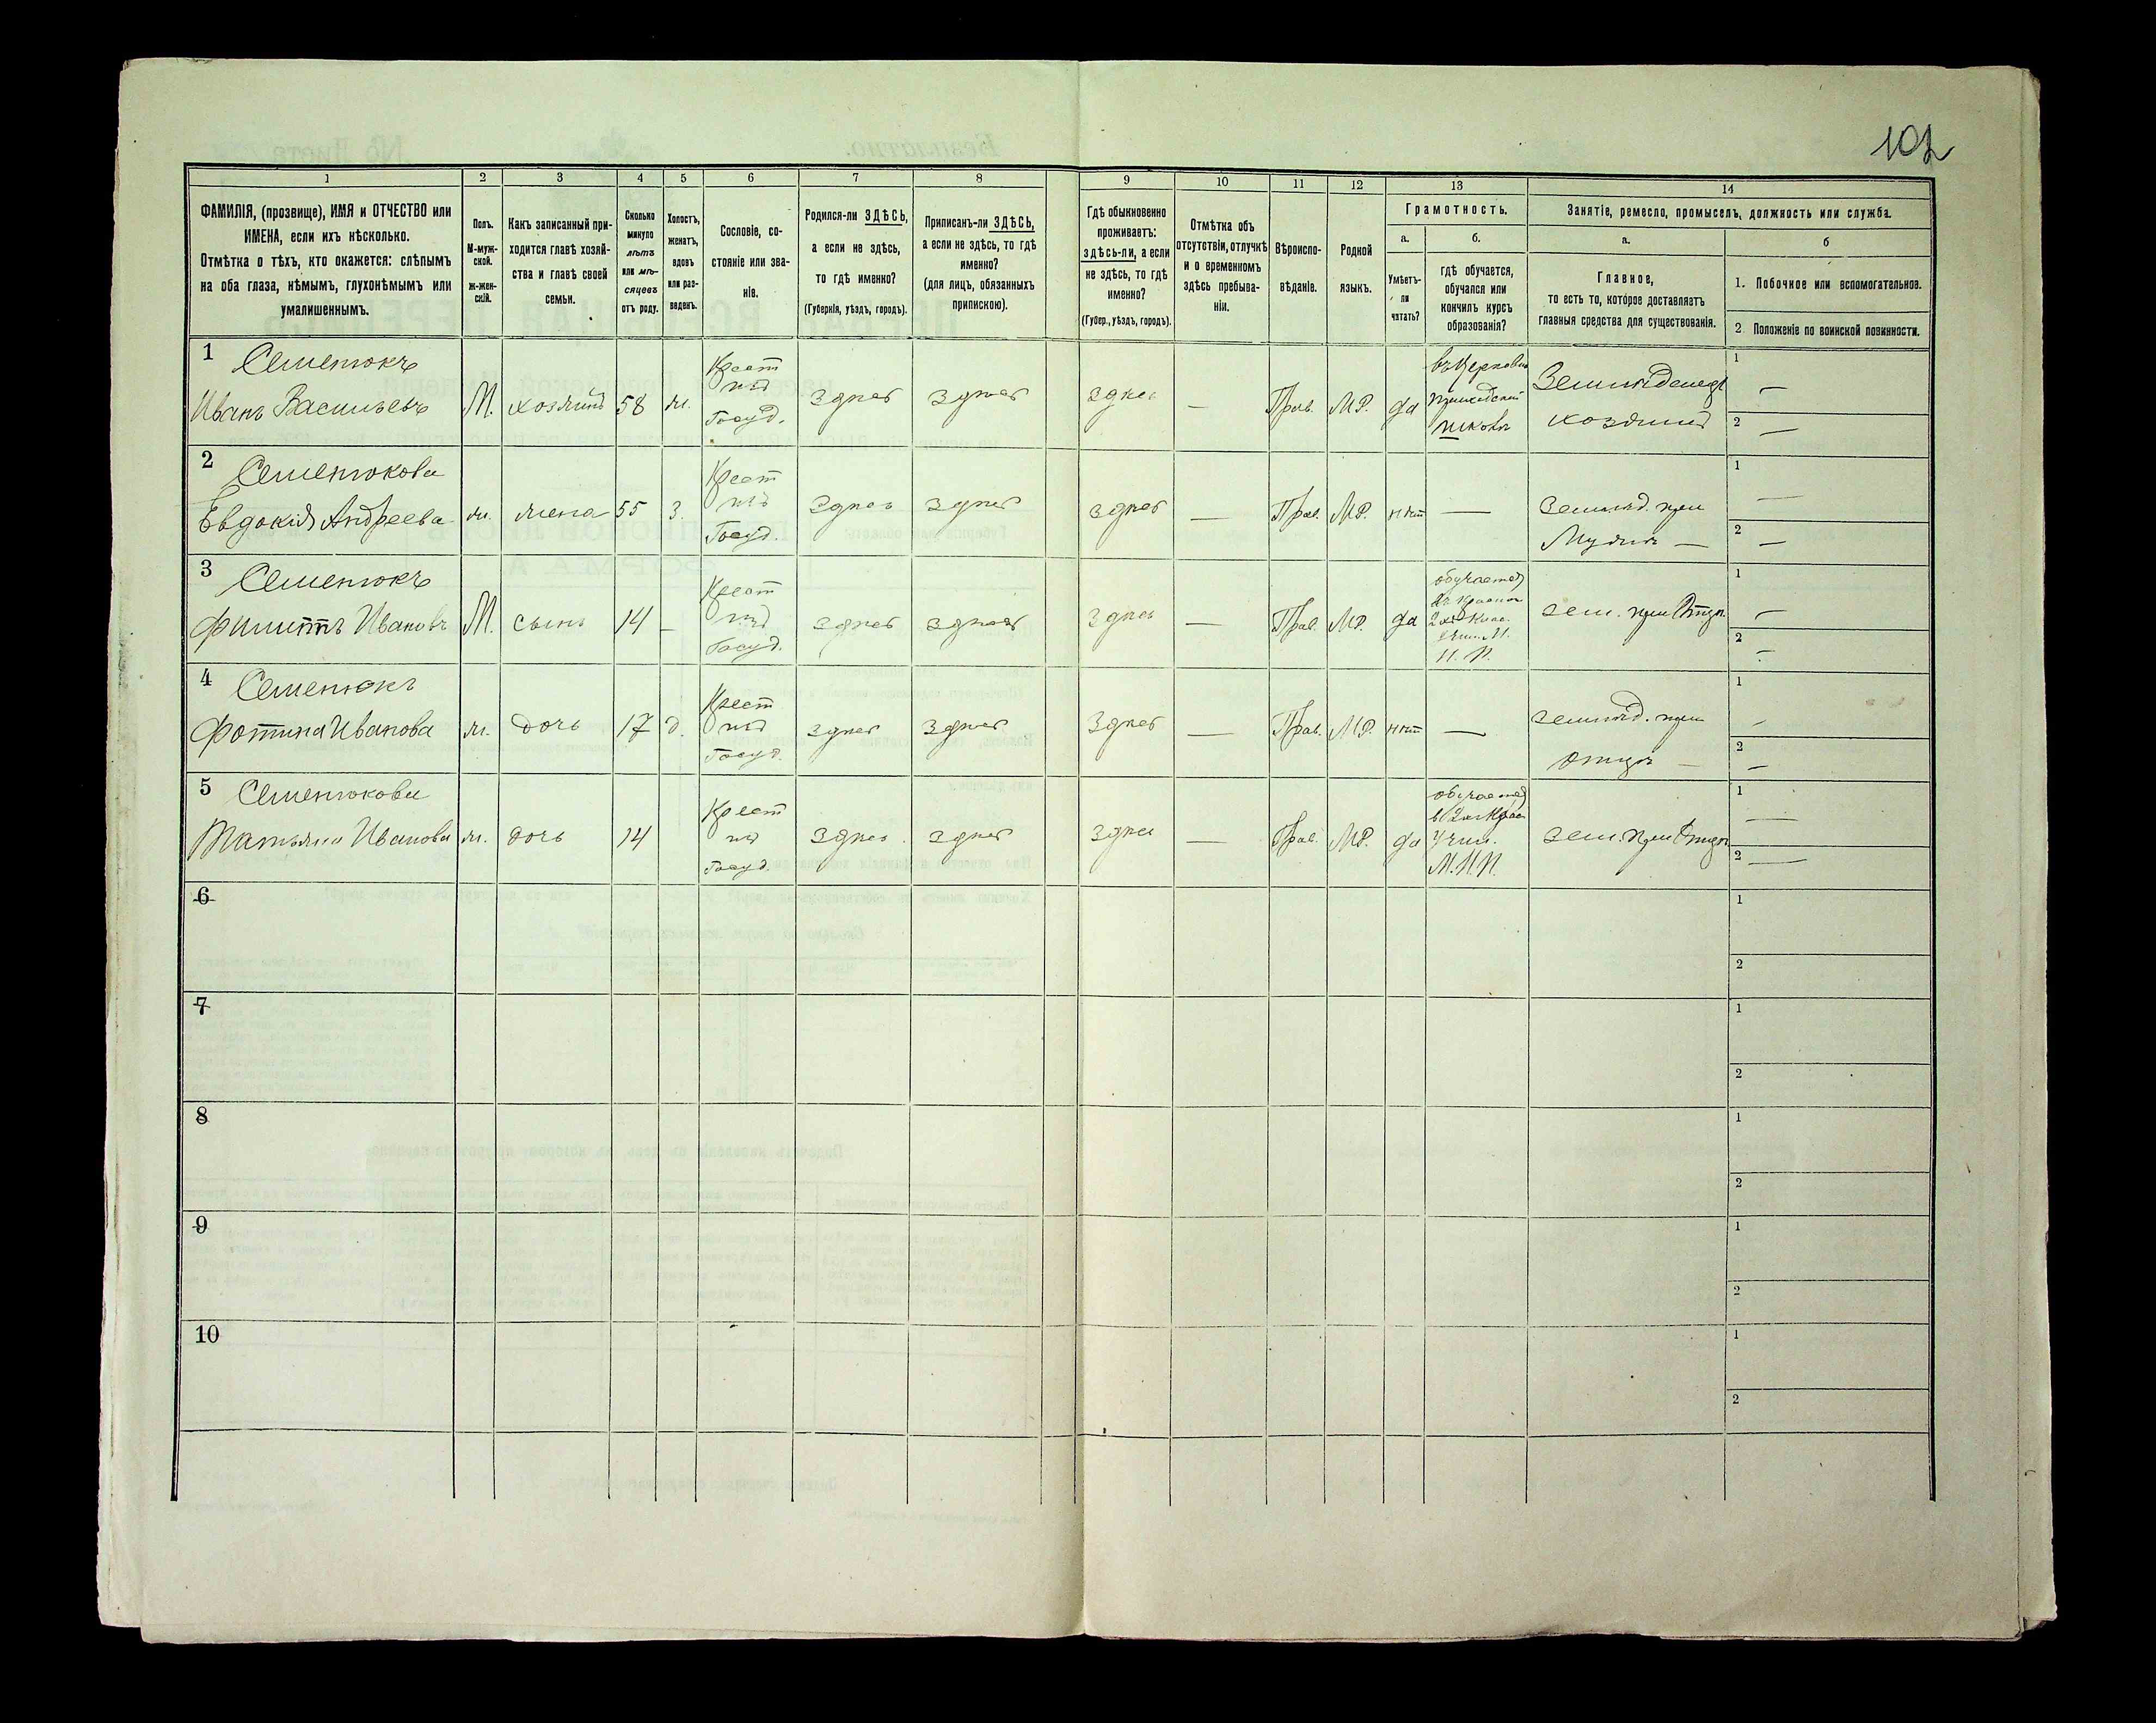 102
1
2
3
4
5
6
7
8
9
10
11
12
13
14
ФАМИЛІЯ, (прозвище), ИМЯ и ОТЧЕСТВО или
ИМЕНА, если ихъ нѣсколько.
Отмѣтка о тѣхъ, кто окажется: слѣпымъ
на оба глаза, нѣмымъ, глухонѣмымъ или
умалишеннымъ.
Полъ.
М-муж-
ской.
ж-жен-
скій.
Какъ записанный при-
ходится главѣ хозяй-
ства и главѣ своей
семьи.
Сколько
минуло
лѣтъ
или мѣ-
сяцевъ
отъ роду.
Холостъ,
женатъ,
вдовъ
или раз-
веденъ.
Сословіе, со-
стояніе или зва-
ніе.
Родился-ли ЗДѢСЬ,
а если не здѣсь,
то гдѣ именно?
(Губернія, уѣздъ, городъ).
Приписанъ-ли ЗДѢСЬ,
а если не здѣсь, то гдѣ
именно?
(для лицъ, обязанныхъ
припискою).
Гдѣ обыкновенно
проживаетъ:
здѣсь-ли, а если
не здѣсь, то гдѣ
именно?
(Губер., уѣздъ, городъ).
Отмѣтка объ
отсутствіи, отлучкѣ
и о временномъ
здѣсь пребыва-
ніи.
Вѣроиспо-
вѣданіе.
Родной
языкъ.
Грамотность.
а.
Умѣетъ-
ли
читать?
б.
гдѣ обучается,
обучался или
кончилъ курсъ
образованія?
Занятіе, ремесло, промыселъ, должность или служба.
а.
Главное,
то есть то, которое доставляетъ
главныя средства для существованія.
б
1. Побочное или вспомогательное.
2 Положеніе по воинской повинности.
1
Семенюкъ
Иванъ Васильевъ
М.
хозяинъ
58
ж.
Крест
изъ
Госуд.
Здѣсь
Здѣсь
Здѣсь
—
Прав.
МР.
да
въ Церковно
Приходской
школѣ
Земледѣлецъ
хозяинъ
1 —
2 —
2
Семенюкова
Евдокія Андреева
ж.
жена
55
З.
Крест
изъ
Госуд.
Здѣсь
Здѣсь
Здѣсь
—
Прав.
МР.
нѣт
—
Земляд. при
Мужѣ —
1 —
2 —
3
Семенюкъ
Филиппъ Ивановъ
М.
сынъ
14
—
Крест
изъ
Госуд.
Здѣсь
Здѣсь
Здѣсь
—
Прав.
МР.
да
обучается
2хъ Клас.
Учил. М.
Н. П.
зем. при Отцѣ.
1 —
2 —
4
Семенюкъ
Фотина Иванова
ж.
дочь
17
д.
Крест
изъ
Госуд.
Здѣсь
Здѣсь
Здѣсь
—
Прав.
МР.
нѣт
—
земляд. при
отцѣ —
1 —
2 —
5
Семенюкова
Татьяна Иванова
ж.
дочь
14
Крест
изъ
Госуд.
Здѣсь
Здѣсь
Здѣсь
—
Прав.
МР.
да
обучается
Учил.
М.Н.П.
зем. при Отцѣ
1 —
2 —
6
1
2
7
1
2
8
1
2
9
1
2
10
1
2